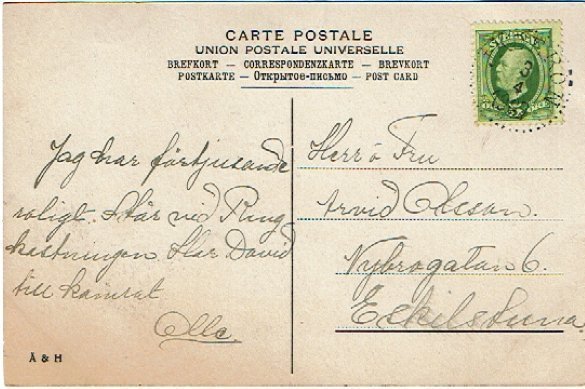 CARTE POSTALE
UNION POSTALE UNIVERSELLE
BREFKORT – CORRESPONDENZKARTE – BREVKORT
POSTKARTE – Открытое-письмо – POST CARD
Jag har förtjusande
roligt. Står vid Ring
kastningen. Har David
till kamrat
Olle.
Herr o Fru
Arvid Olsson.
Nybrogatan 6.
Eskilstuna
Ä & H